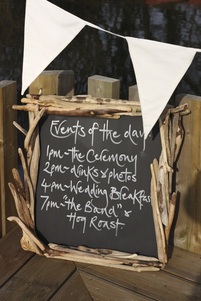 Events of the day
1pm~the Ceremony
2pm~drinks & photos
4pm~Wedding Breakfast
7pm~"the Band" &
Hog Roast